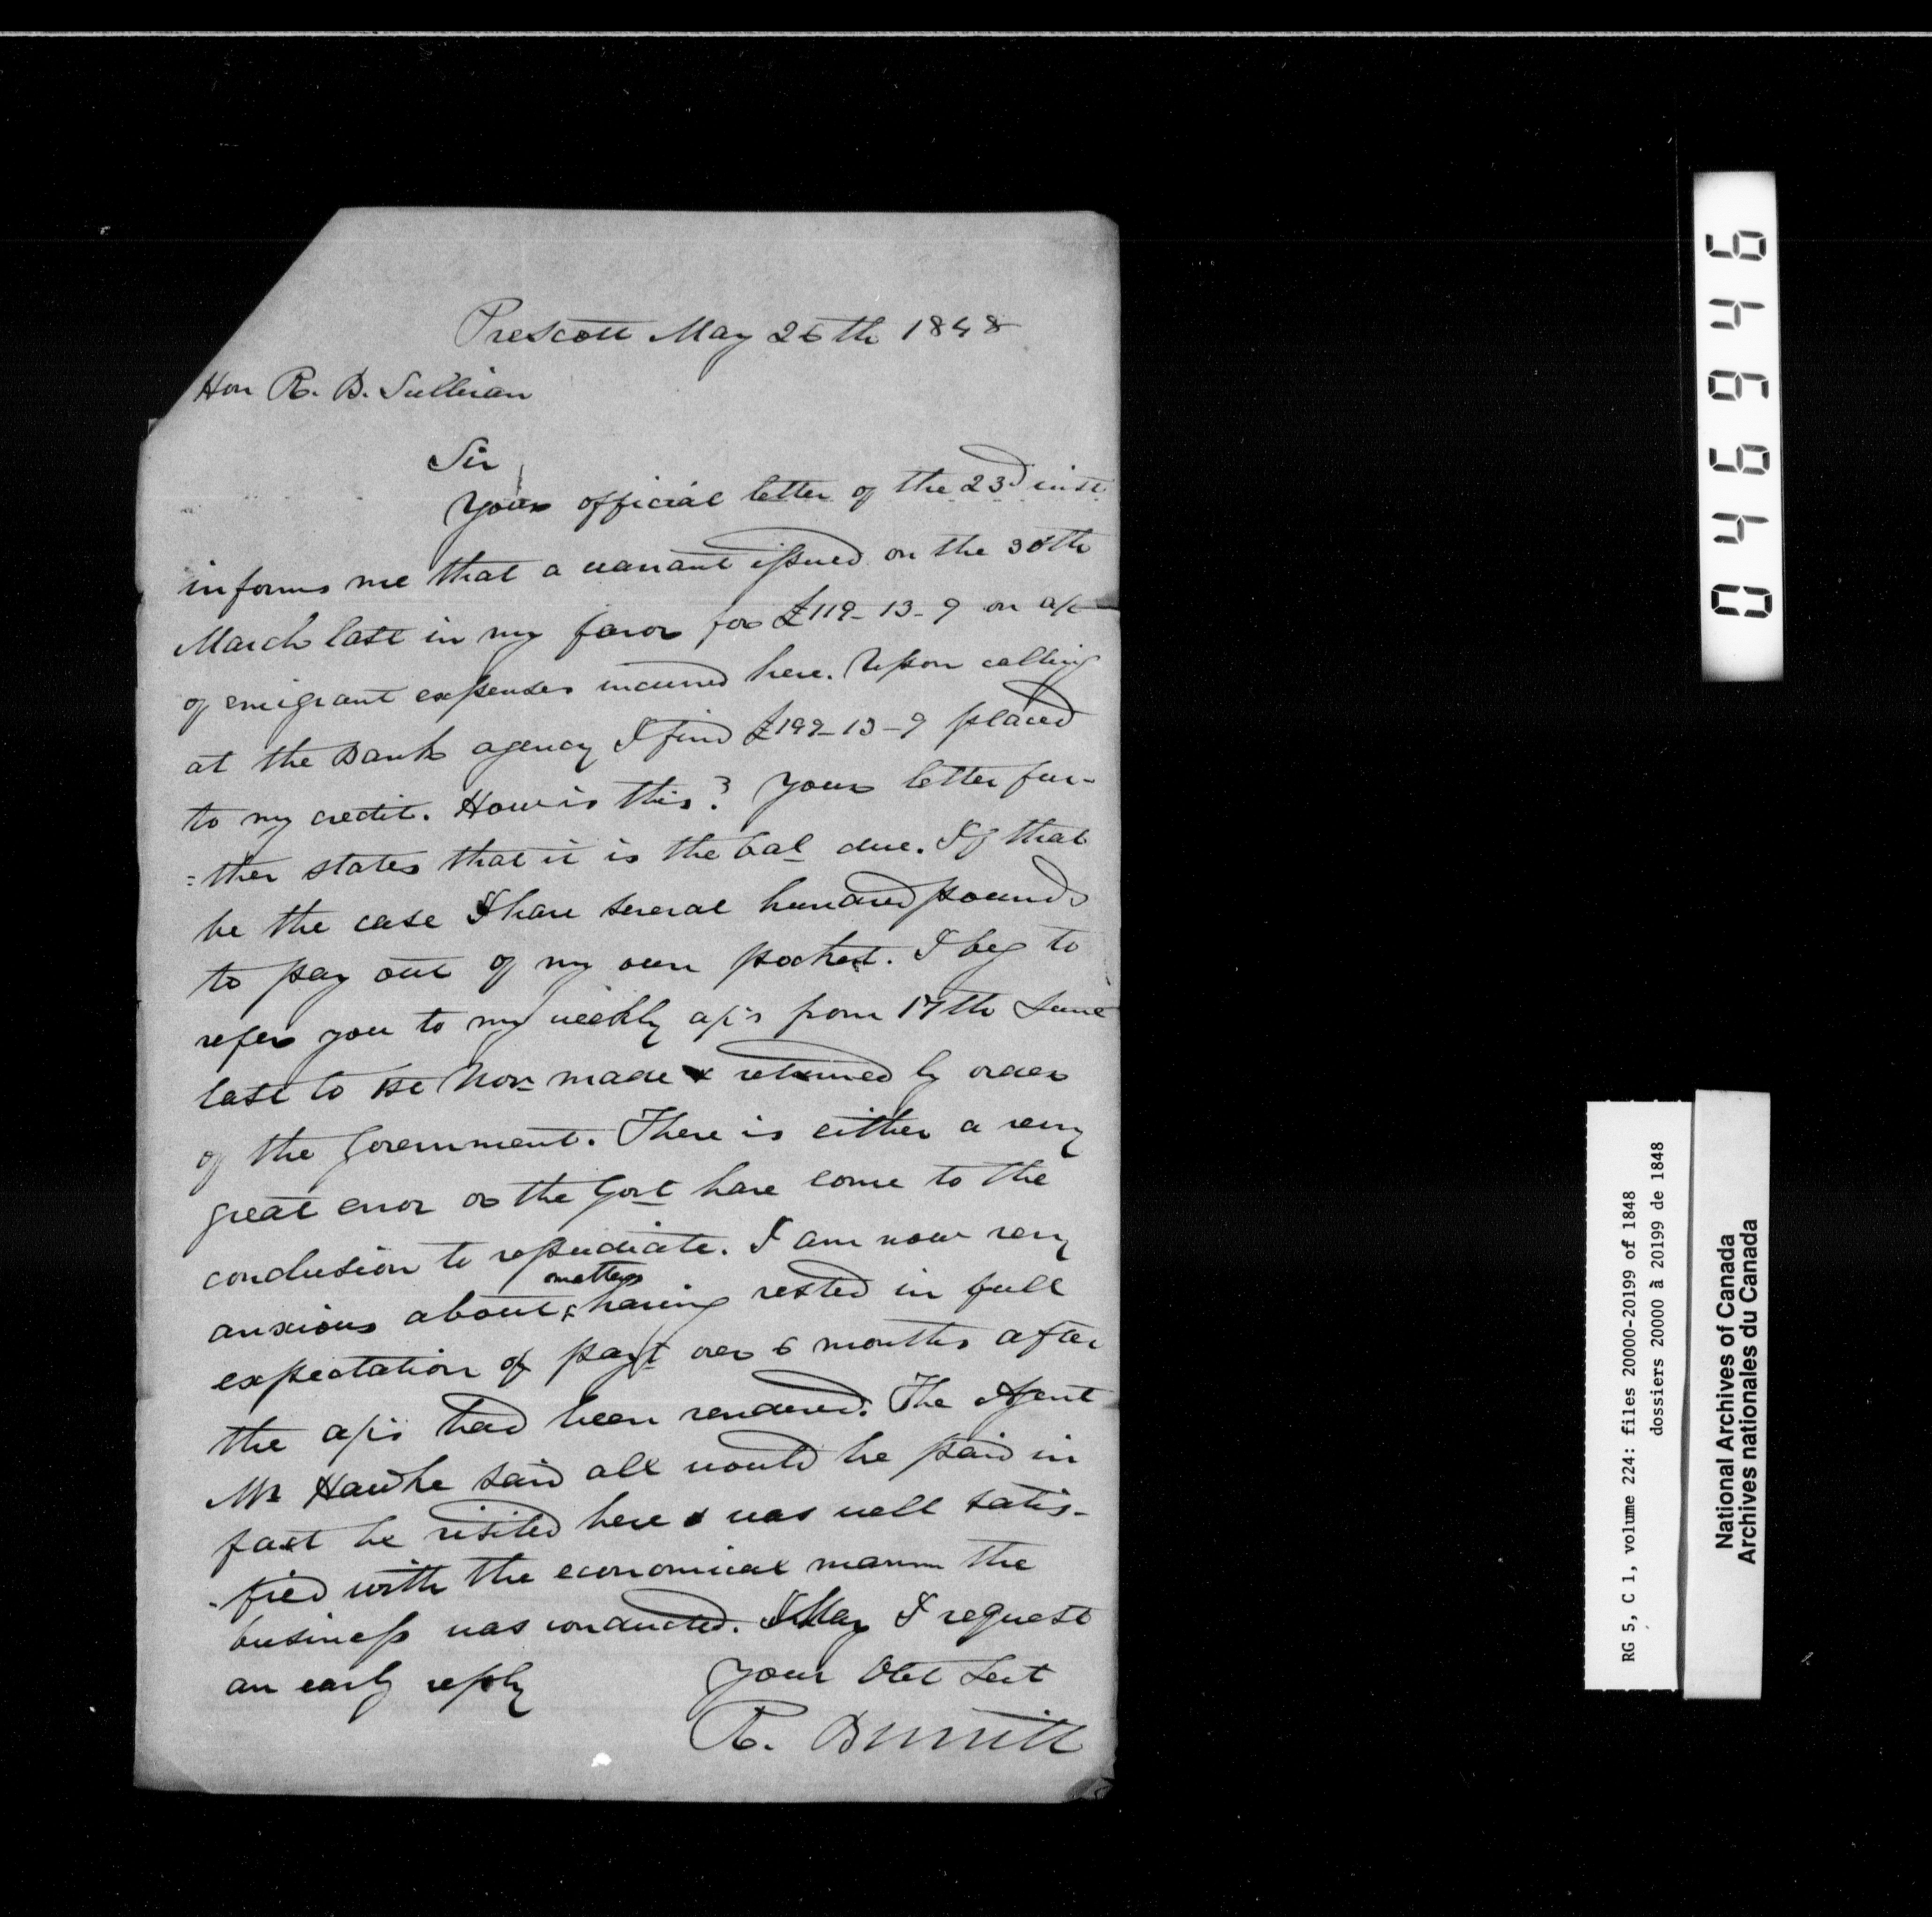 Prescott May 26th 1848
Hon R. B. Sullivan
Sir
Your official letter of the 23d inst
informs me that a warrant issued on the 30th
March last in my favor for £119-13-9 on a/c
of emigrant expenses incurred here. Upon calling
at the Bank agency I find £199-13-9 placed
to my credit. How is this? Your letter fur-
=ther states that it is the bal due. If that
be the case I have several hundred pounds
to pay out of my own pocket. I beg to
refer you to my weekly a/cs from 17th June
last to 1st Nov made & returned by order
of the Government. There is either a very
great error or the Govt have come to the
conclusion to repudiate. I am now very
anxious about matters having rested in full
expectation of payt over 6 months after
the a/cs had been rendered. The Agent
Mr Hawke said all would be paid in
fact he visited here & was well satis-
-fied with the economical mann the
business was conducted. May I request
an early reply
Your Obt Sert
R. Burritt
046946
RG 5, C 1, volume 224: files 20000-20199 of 1848
dossiers 20000 à 20199 de 1848
National Archives of Canada
Archives nationales du Canada